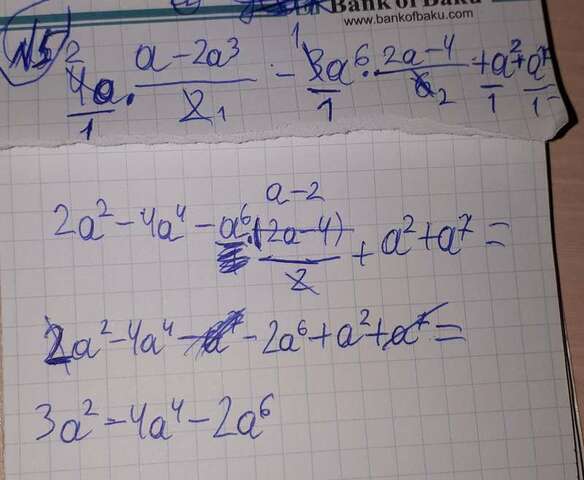 Bank of Baku
www.bankofbaku.com
N5
4a/1 · (a-2a³)/2 - 3a⁶/1 · (2a-4)/6 + a²/1 + a⁷/1 =
2a² - 4a⁴ - a⁶ · (2a-4)/2 + a² + a⁷ =
a-2
2a² - 4a⁴ - a⁷ - 2a⁶ + a² + a⁷ =
3a² - 4a⁴ - 2a⁶